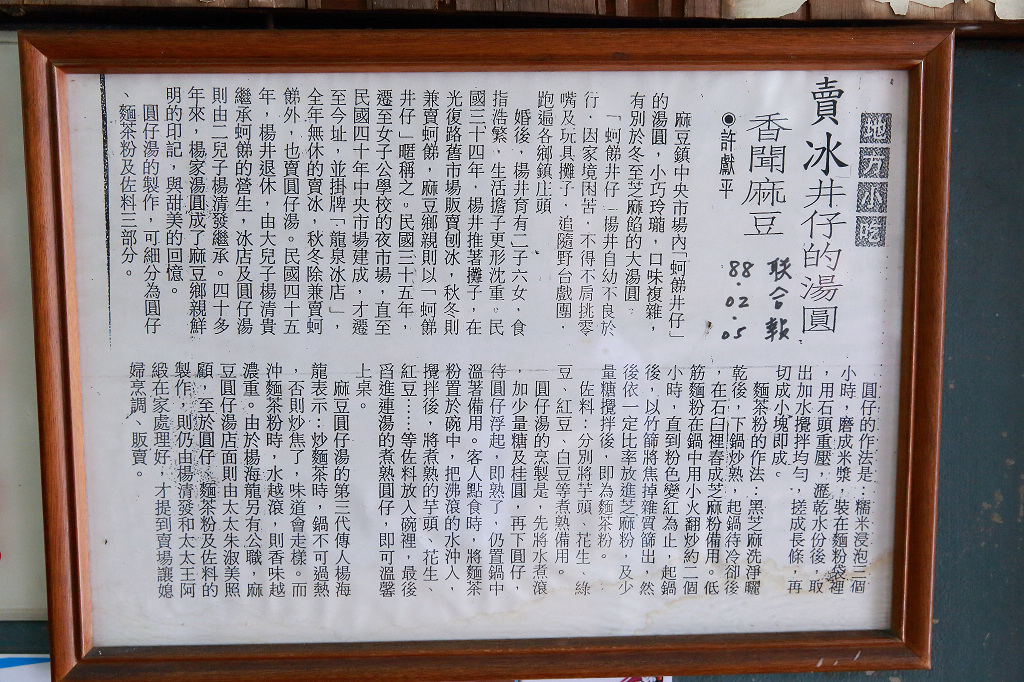 地方小吃
賣冰「井仔」的湯圓
香聞麻豆
●許獻平
联合報
88.02.05
麻豆鎮中央市場內「蚵䬾井仔」
的湯圓，小巧玲瓏，口味複雜，
有別於冬至芝麻餡的大湯圓。
「蚵䬾井仔」楊井自幼不良於
行，因家境困苦，不得不肩挑零
嘴及玩具攤子，追隨野台戲團，
跑遍各鄉鎮庄頭。
婚後，楊井育有二子六女，食
指浩繁，生活擔子更形沈重。民
國三十四年，楊井推著攤子，在
光復路舊市場販賣刨冰，秋冬則
兼賣蚵䬾，麻豆鄉親則以「蚵䬾
井仔」暱稱之。民國三十五年，
遷至女子公學校的夜市場，直至
民國四十年中央市場建成，才遷
至今址，並掛牌「龍泉冰店」，
全年無休的賣冰，秋冬除兼賣蚵
䬾外，也賣圓仔湯。民國四十五
年，楊井退休，由大兒子楊清貴
繼承蚵䬾的營生，冰店及圓仔湯
則由二兒子楊清發繼承。四十多
年來，楊家湯圓成了麻豆鄉親鮮
明的印記，與甜美的回憶。
圓仔湯的製作，可細分為圓仔
、麵茶粉及佐料三部分。
圓仔的作法是：糯米浸泡三個
小時，磨成米漿，裝在麵粉袋裡
，用石頭重壓，瀝乾水份後，取
出加水攪拌均勻，搓成長條，再
切成小塊即成。
麵茶粉的作法：黑芝麻洗淨曬
乾後，下鍋炒熟，起鍋待冷卻後
，在石臼裡舂成芝麻粉備用。低
筋麵粉在鍋中用小火翻炒約二個
小時，直到粉色變紅為止，起鍋
後，以竹篩將焦掉雜質篩出，然
後依一定比率放進芝麻粉，及少
量糖攪拌後，即為麵茶粉。
佐料：分別將芋頭、花生、綠
豆、紅豆、白豆等煮熟備用。
圓仔湯的烹製是，先將水煮滾
，加少量糖及桂圓，再下圓仔，
待圓仔浮起，即熟了，仍置鍋中
溫著備用。客人點食時，將麵茶
粉置於碗中，把沸滾的水沖入，
攪拌後，將煮熟的芋頭、花生、
紅豆……等佐料放入碗裡，最後
舀進連湯的煮熟圓仔，即可溫馨
上桌。
麻豆圓仔湯的第三代傳人楊海
龍表示：炒麵茶時，鍋不可過熱
，否則炒焦了，味道會走樣。而
沖麵茶粉時，水越滾，則香味越
濃重。由於楊海龍另有公職，麻
豆圓仔湯店面則由太太朱淑美照
顧，至於圓仔、麵茶粉及佐料的
製作，則仍由楊清發和太太王阿
緞在家處理好，才提到賣場讓媳
婦烹調、販賣。